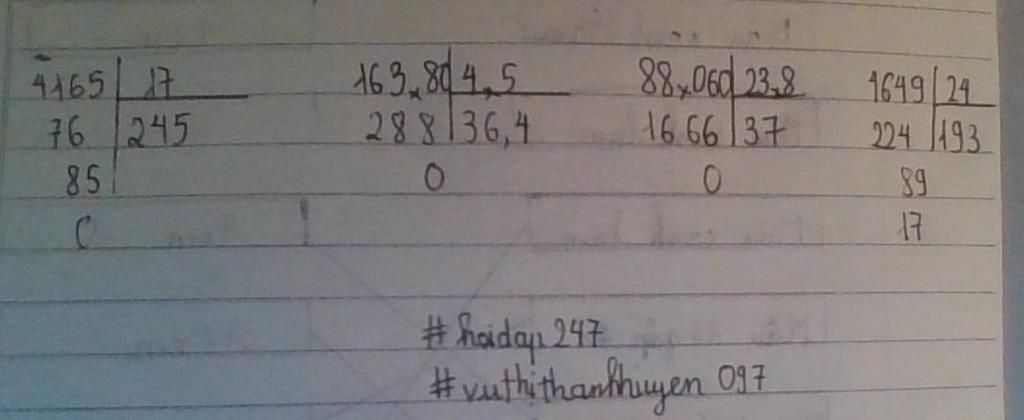 4165 17 163,80 4,5 88,060 23,8 1649 24
76 245 288 36,4 1666 37 224 193
85 0 0 89
0 17
#hoidap247
#vuthithanhhuyen 097